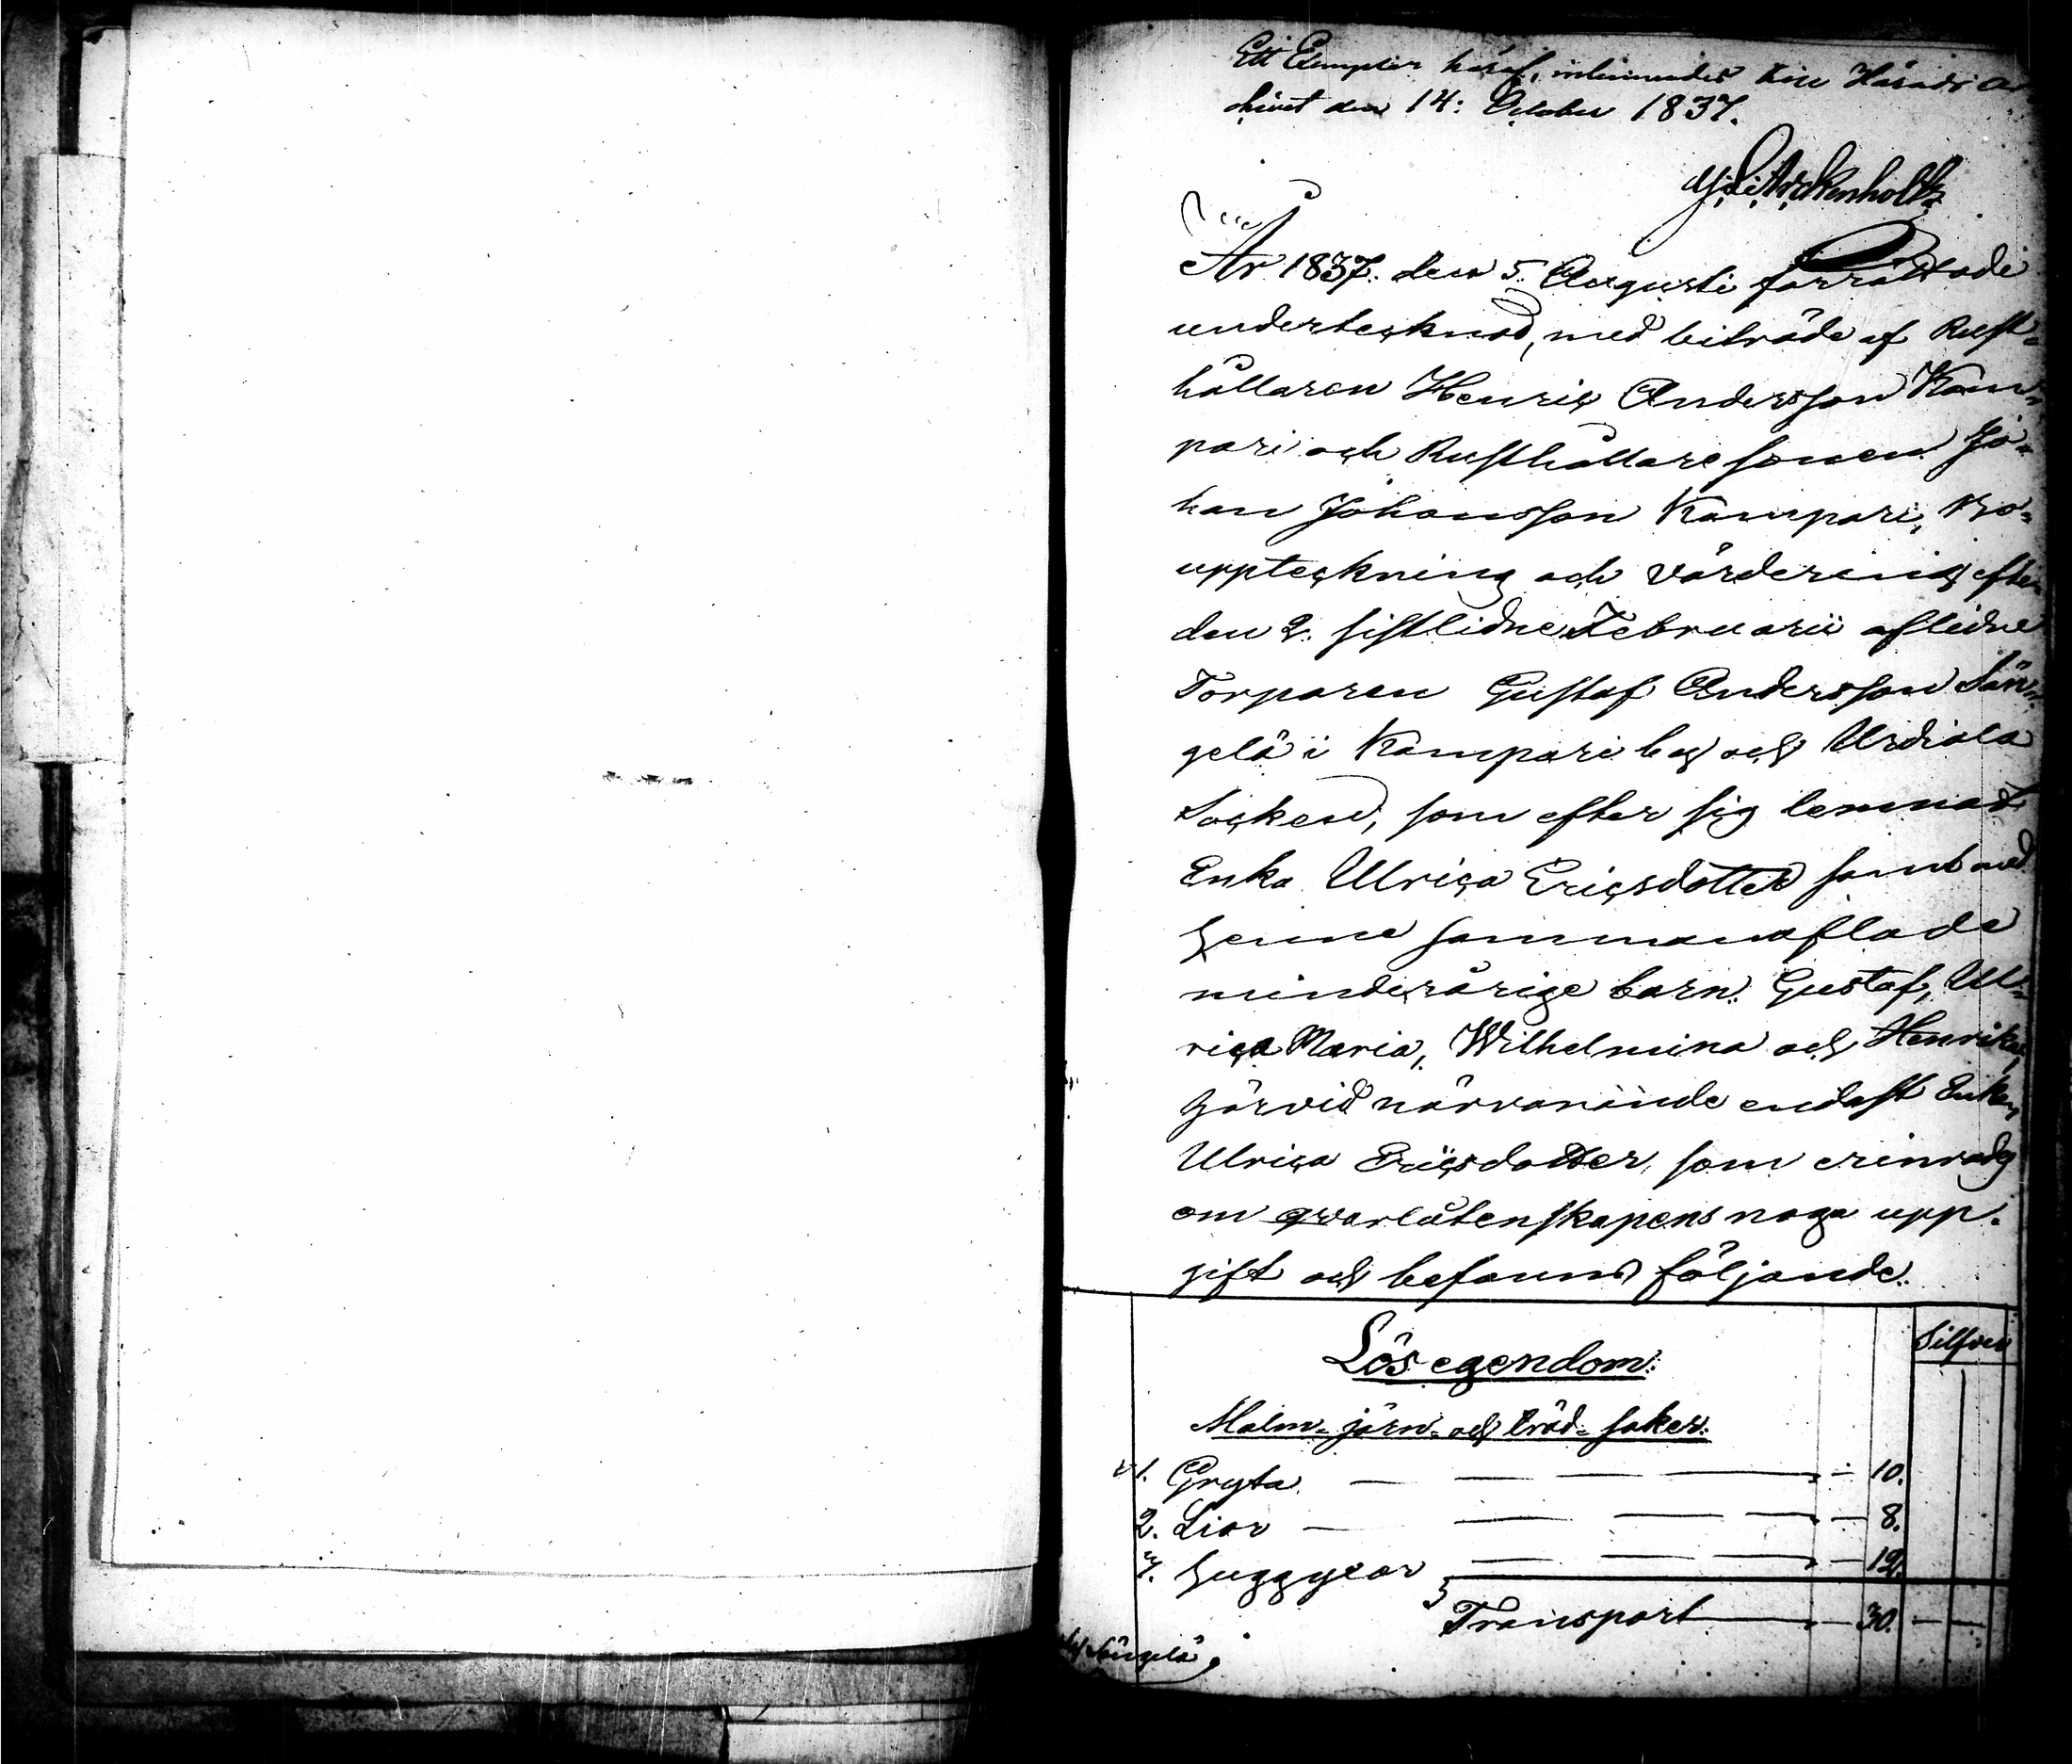 Ett Exemplar häraf, inlemnades till Härads Ar
chivet den 14: October 1837.
År 1837. den 5. Augusti förrättade
undertecknad, med biträde af Rust-
hållaren Henric Andersson Kam-
pari och Rusthållaresonen Jo-
han Johansson Kampari, Bo-
uppteckning och värdering efter
den 2. sistlidne Februarii aflidne
Torparen Gustaf Andersson Sän-
gelä i Kampari by och Urdiala
Socken, som efter sig lemnat
Enka Ulrica Ericsdotter samt med
henne sammanaflade
minderårige barn: Gustaf, Ul-
rica Maria, Wilhelmina och Henrika,
härvid närvarande endast Enkan
Ulrica Ericsdotter, som erinrades
om qvarlåtenskapens noga upp-
gift och befanns följande.
Silfver
Lös egendom:
Malm- järn- och träd- saker.
1. Gryta — 10.
2. Liar — 8.
Huggyxor — 12.
Transport — 30. —
Sängelä